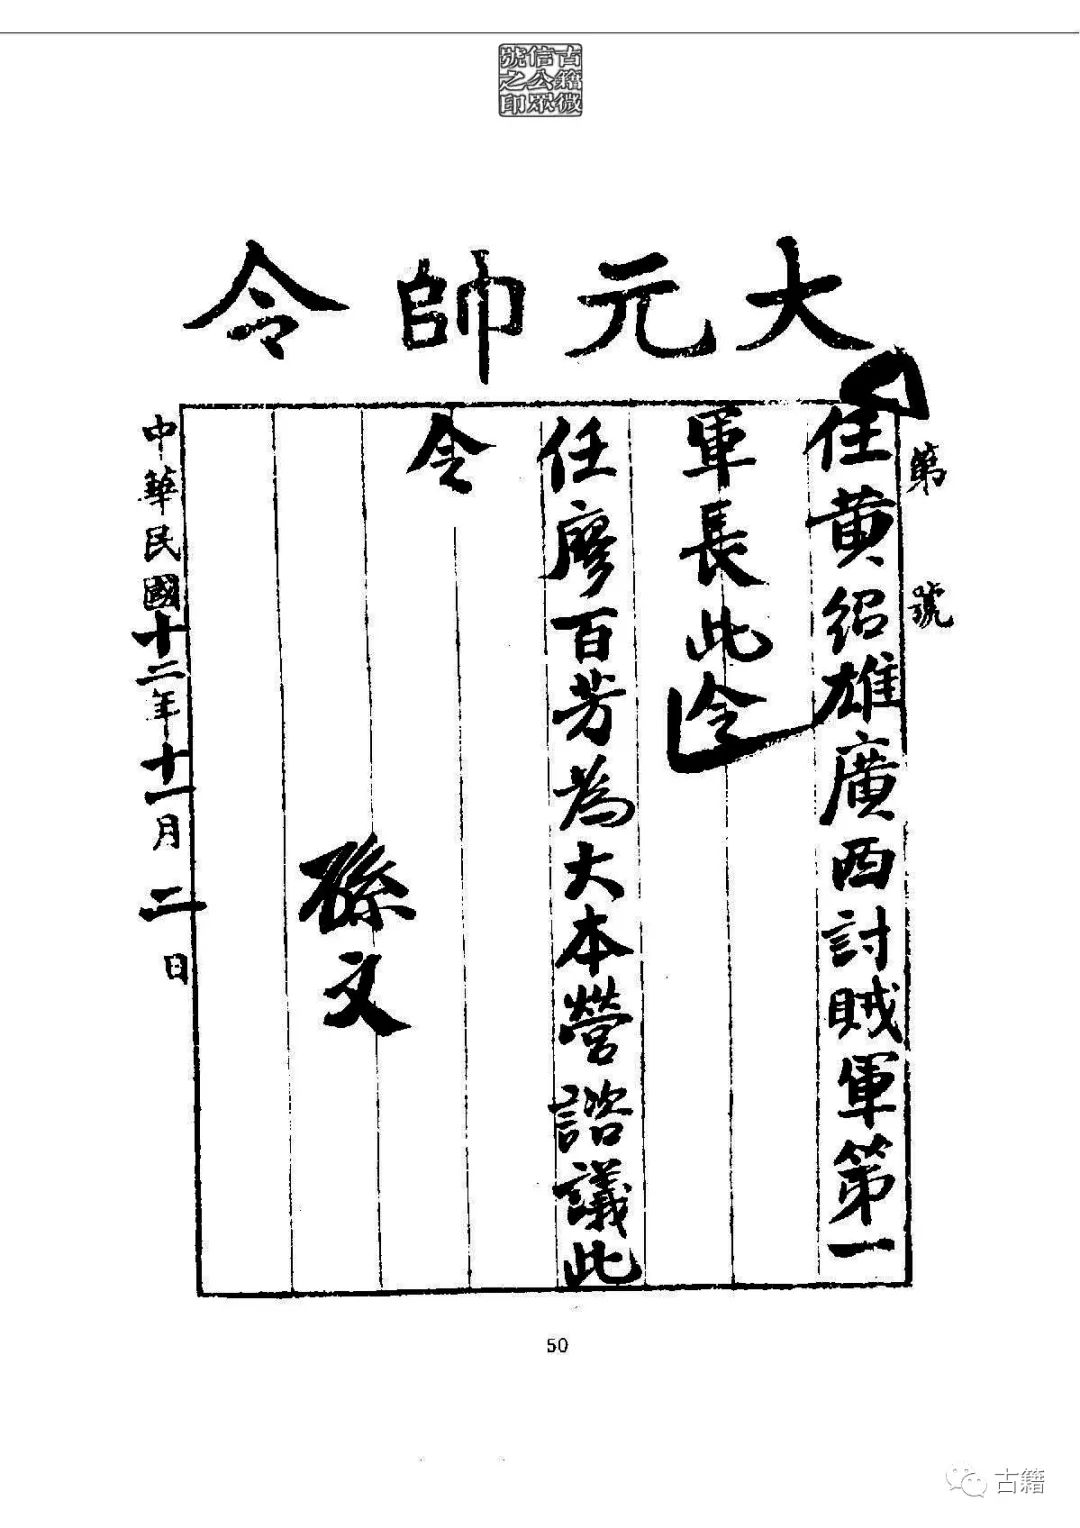 古籍微
信公眾
號之印
大元帥令
第　號
任黃紹雄廣西討賊軍第一
軍長此令
任廖百芳為大本營諮議此
令
孫文
中華民國十二年十一月二日
50
古籍